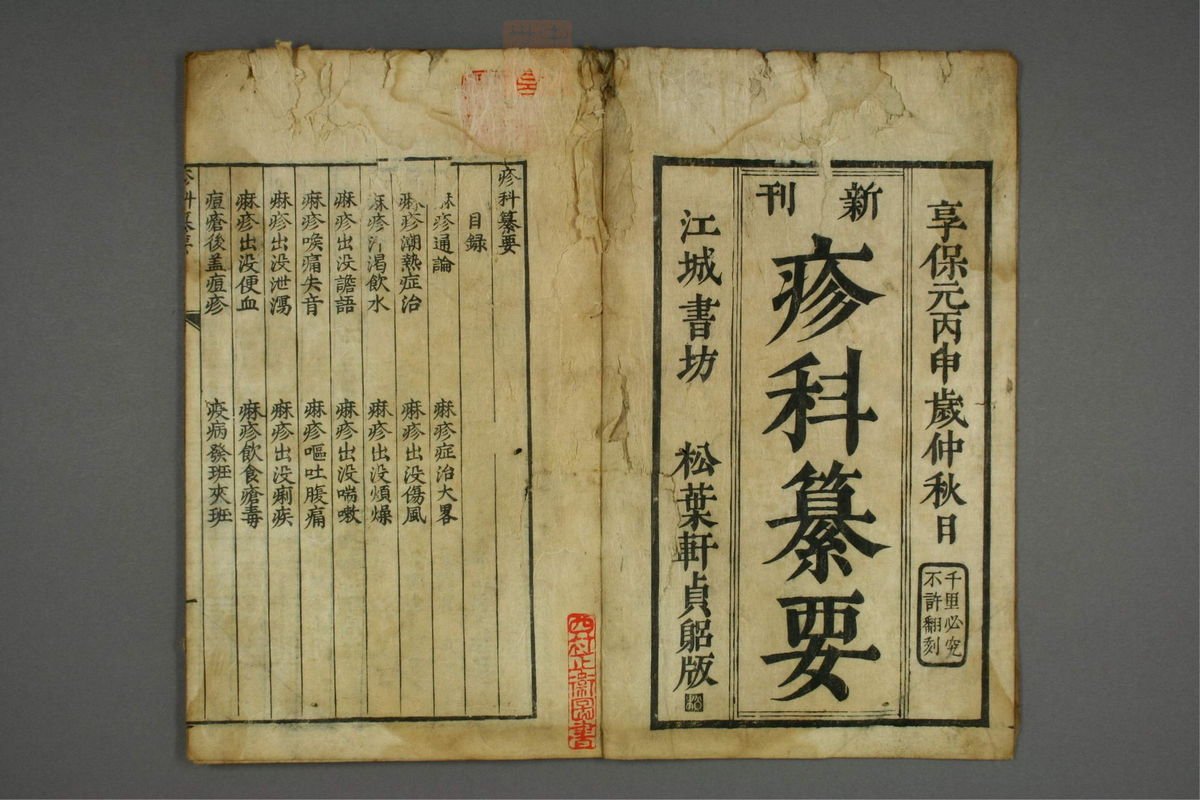 享保元丙申歲仲秋日
千里必究
不許翻刻
新刊
疹科纂要
江城書坊 松葉軒貞 版
疹科纂要
目錄
麻疹通論 麻疹症治大畧
麻疹潮熱症治 麻疹出没傷風
麻疹 渴飲水 麻疹出没煩燥
麻疹出没譫語 麻疹出没喘嗽
麻疹喉痛失音 麻疹嘔吐腹痛
麻疹出没泄瀉 麻疹出没痢疾
麻疹出没便血 麻疹飲食瘡毒
痘瘡後盖痘疹 疫病發班夾班
疹科纂要
西村 衛圖書